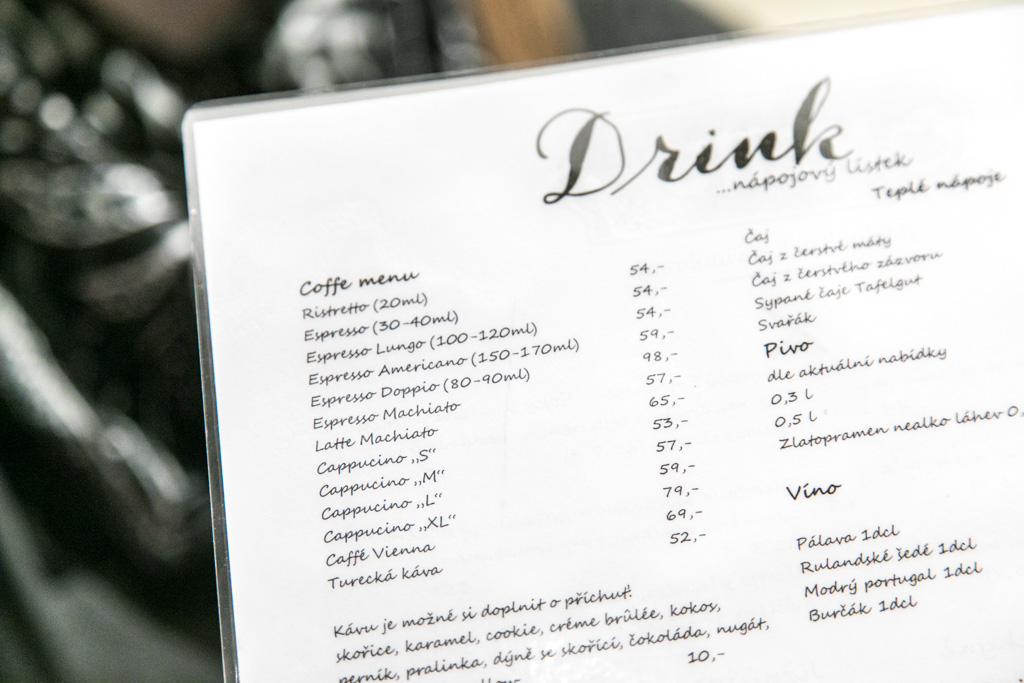 Drink
...nápojový lístek
Coffe menu
Ristretto (20ml) 54,-
Espresso (30-40ml) 54,-
Espresso Lungo (100-120ml) 54,-
Espresso Americano (150-170ml) 59,-
Espresso Doppio (80-90ml) 98,-
Espresso Machiato 57,-
Latte Machiato 65,-
Cappucino „S“ 53,-
Cappucino „M“ 57,-
Cappucino „L“ 59,-
Cappucino „XL“ 79,-
Caffé Vienna 69,-
Turecká káva 52,-
Kávu je možné si doplnit o příchuť:
skořice, karamel, cookie, créme brûlée, kokos,
perník, pralinka, dýně se skořicí, čokoláda, nugát,
10,-
Teplé nápoje
Čaj
Čaj z čerstvé máty
Čaj z čerstvého zázvoru
Sypané čaje Tafelgut
Svařák
Pivo
dle aktuální nabídky
0,3 l
0,5 l
Zlatopramen nealko láhev 0,
Víno
Pálava 1dcl
Rulandské šedé 1dcl
Modrý portugal 1dcl
Burčák 1dcl